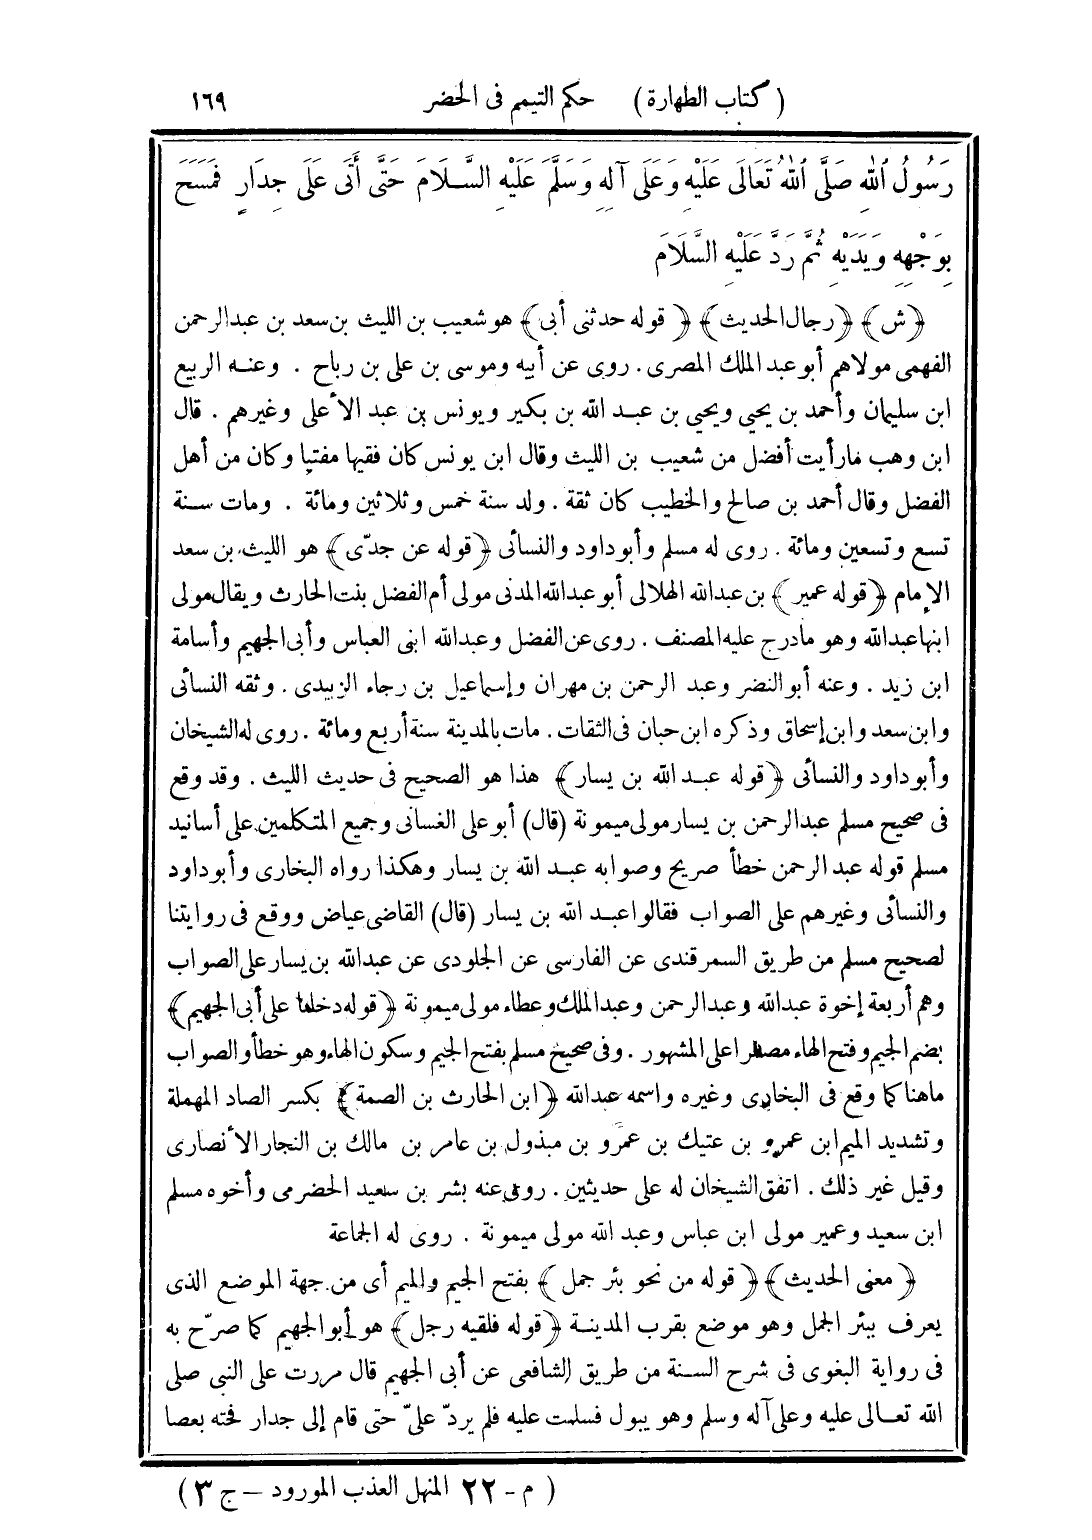 ( كتاب الطهارة ) حكم التيمم فى الحضر ١٦٩
رَسُولُ ٱللهِ صَلَّى ٱللهُ تَعَالَى عَلَيْهِ وَعَلَى آلِهِ وَسَلَّمَ عَلَيْهِ السَّلَامَ حَتَّى أَتَى عَلَى جِدَارٍ فَمَسَحَ
بِوَجْهِهِ وَيَدَيْهِ ثُمَّ رَدَّ عَلَيْهِ السَّلَامَ
﴿ش﴾ ﴿رجال الحديث﴾ ﴿قوله حدثنى أبى﴾ هو شعيب بن الليث بن سعد بن عبد الرحمن
الفهمى مولاهم أبو عبد الملك المصرى . روى عن أبيه وموسى بن على بن رباح . وعنه الربيع
ابن سليمان وأحمد بن يحيى ويحيى بن عبد الله بن بكير ويونس بن عبد الأعلى وغيرهم . قال
ابن وهب مارأيت أفضل من شعيب بن الليث وقال ابن يونس كان فقيها مفتيا وكان من أهل
الفضل وقال أحمد بن صالح والخطيب كان ثقة . ولد سنة خمس وثلاثين ومائة . ومات سنة
تسع وتسعين ومائة . روى له مسلم وأبو داود والنسائى ﴿قوله عن جدّى﴾ هو الليث بن سعد
الإمام ﴿قوله عمير﴾ بن عبدالله الهلالى أبو عبدالله المدنى مولى أم الفضل بنت الحارث ويقال مولى
ابنها عبدالله وهو مادرج عليه المصنف . روى عن الفضل وعبدالله ابنى العباس وأبى الجهيم وأسامة
ابن زيد . وعنه أبو النضر وعبد الرحمن بن مهران وإسماعيل بن رجاء الزبيدى . وثقه النسائى
وابن سعد وابن إسحاق وذكره ابن حبان فى الثقات . مات بالمدينة سنة أربع ومائة . روى له الشيخان
وأبو داود والنسائى ﴿قوله عبد الله بن يسار﴾ هذا هو الصحيح فى حديث الليث . وقد وقع
فى صحيح مسلم عبدالرحمن بن يسار مولى ميمونة (قال) أبو على الغسانى وجميع المتكلمين على أسانيد
مسلم قوله عبد الرحمن خطأ صريح وصوابه عبد الله بن يسار وهكذا رواه البخارى وأبو داود
والنسائى وغيرهم على الصواب فقالوا عبد الله بن يسار (قال) القاضى عياض ووقع فى روايتنا
لصحيح مسلم من طريق السمرقندى عن الفارسى عن الجلودى عن عبدالله بن يسار على الصواب
وهم أربعة إخوة عبدالله وعبدالرحمن وعبدالملك وعطاء مولى ميمونة ﴿قوله دخلنا على أبى الجهيم﴾
بضم الجيم وفتح الهاء مصغرا على المشهور . وفى صحيح مسلم بفتح الجيم وسكون الهاء وهو خطأ والصواب
ماهنا كما وقع فى البخارى وغيره واسمه عبدالله ﴿ابن الحارث بن الصمة﴾ بكسر الصاد المهملة
وتشديد الميم ابن عمرو بن عتيك بن عمرو بن مبذول بن عامر بن مالك بن النجار الأنصارى
وقيل غير ذلك . اتفق الشيخان له على حديثين . روى عنه بشر بن سعيد الحضرمى وأخوه مسلم
ابن سعيد وعمير مولى ابن عباس وعبد الله مولى ميمونة . روى له الجماعة
﴿معنى الحديث﴾ ﴿قوله من نحو بئر جمل﴾ بفتح الجيم والميم أى من جهة الموضع الذى
يعرف ببئر الجمل وهو موضع بقرب المدينة ﴿قوله فلقيه رجل﴾ هو أبو الجهيم كما صرّح به
فى رواية البغوى فى شرح السنة من طريق الشافعى عن أبى الجهيم قال مررت على النبى صلى
الله تعالى عليه وعلى آله وسلم وهو يبول فسلمت عليه فلم يردّ علىّ حتى قام إلى جدار فحته بعصا
( م - ٢٢ المنهل العذب المورود - ج ٣ )